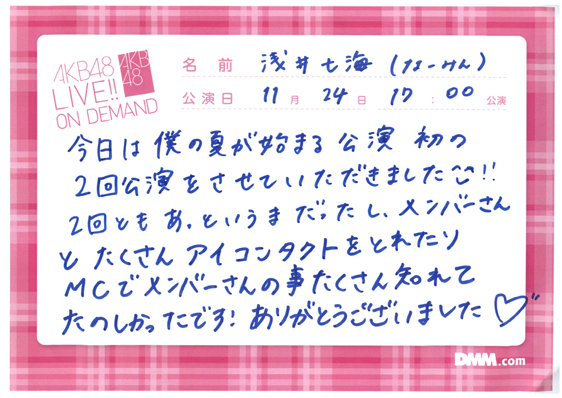 AKB48
LIVE!!
ON DEMAND
AKB
48
名前 浅井七海(なーみん)
公演日 11月24日 17:00公演
今日は僕の夏が始まる公演 初の
2回公演をさせていただきました!!
2回ともあ。というまだったし、メンバーさん
とたくさんアイコンタクトをとれたり
MCでメンバーさんの事たくさん知れて
たのしかったです!ありがとうございました♡
DMM.com